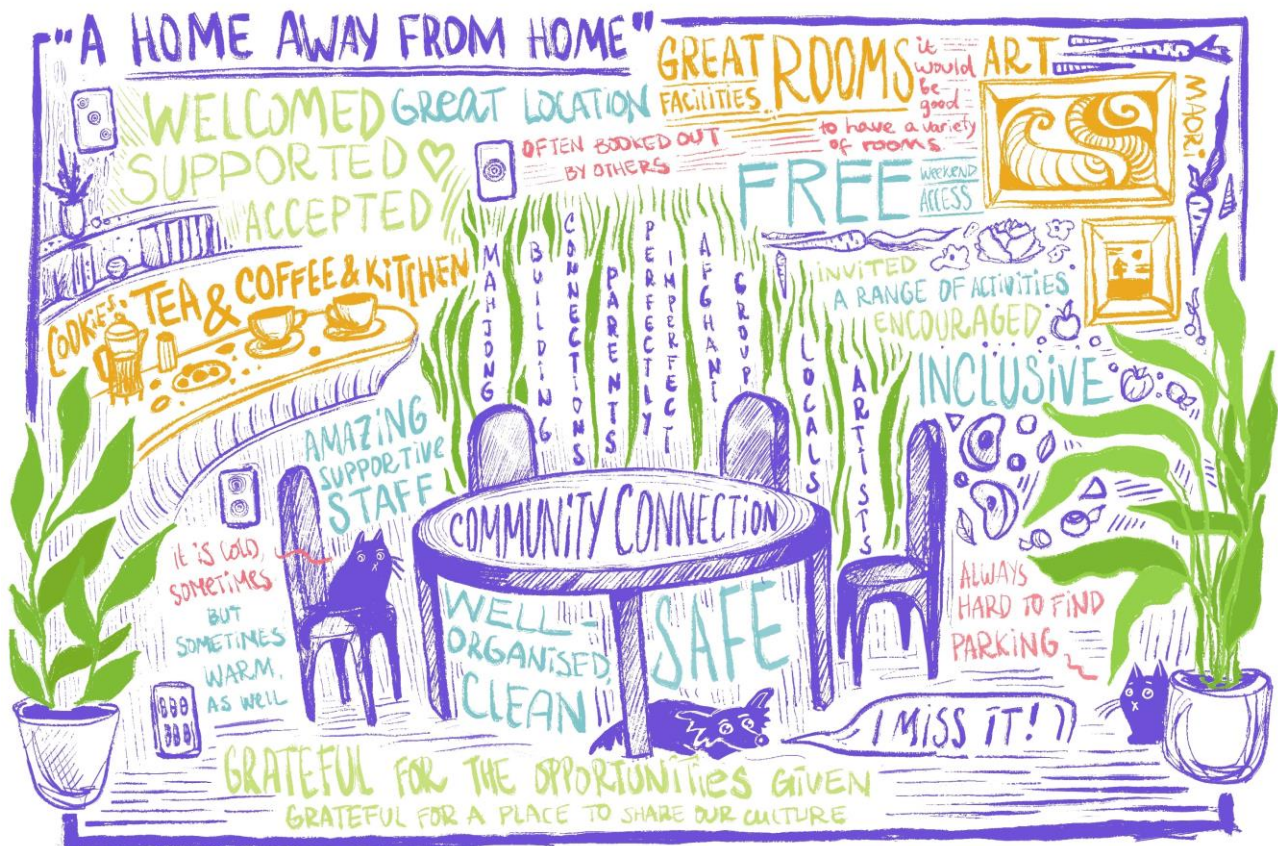 "A HOME AWAY FROM HOME"
WELCOMED
SUPPORTED
ACCEPTED
GREAT LOCATION
OFTEN BOOKED OUT
BY OTHERS
GREAT
FACILITIES
ROOMS
it
would
be
good
to have a variety
of rooms
ART
MAORI
FREE
WEEKEND
ACCESS
COOKIES
TEA & COFFEE & KITCHEN
MAHJONG
BUILDING
CONNECTIONS
PARENTS
PERFECTLY
IMPERFECT
AFGHANI
GROUP
LOCALS
ARTISTS
INVITED
A RANGE OF ACTIVITIES
ENCOURAGED
INCLUSIVE
AMAZING
SUPPORTIVE
STAFF
COMMUNITY CONNECTION
IT IS COLD,
SOMETIMES
BUT
SOMETIMES
WARM,
AS WELL
WELL-
ORGANISED
CLEAN
SAFE
ALWAYS
HARD TO FIND
PARKING
I MISS IT!
GRATEFUL FOR THE OPPORTUNITIES GIVEN
GRATEFUL FOR A PLACE TO SHARE OUR CULTURE